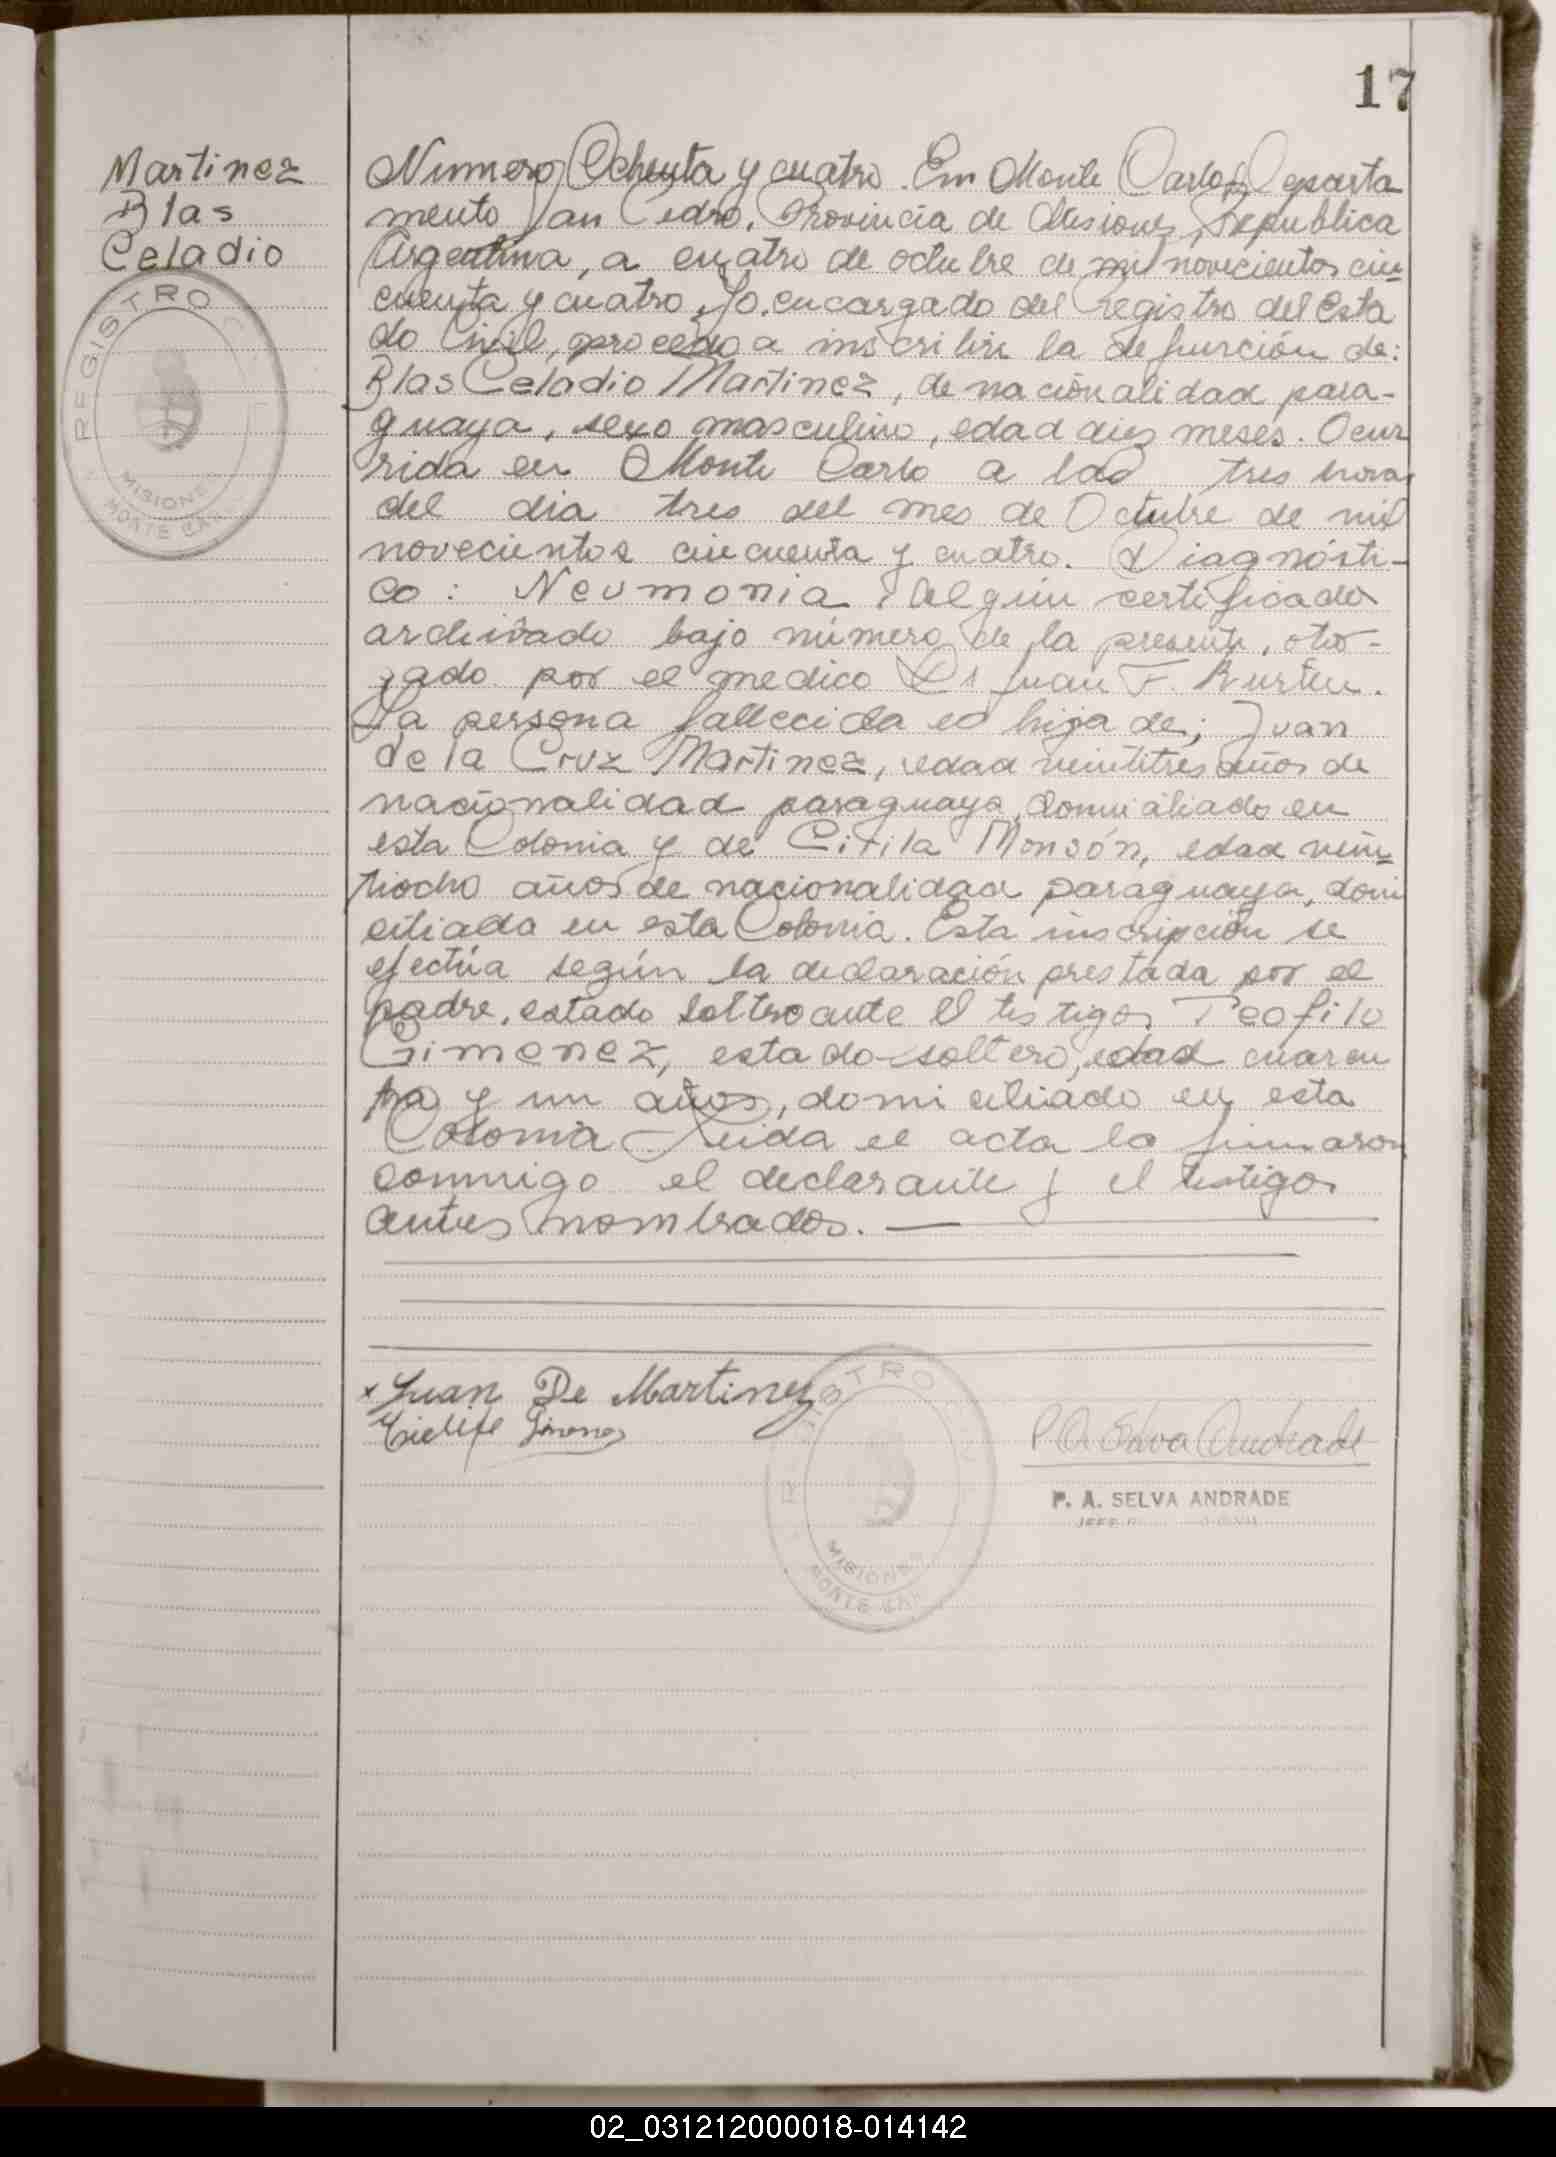 17
Martinez
Blas
Celadio
REGISTRO CIVIL
MISIONES
MONTE CARLO
Numero Ochenta y cuatro. En Monte Carlo, Departa
mento San Pedro, Provincia de Misiones, Republica
Argentina, a cuatro de octubre de mil novecientos cin
cuenta y cuatro. Yo, encargado del Registro del Esta
do Civil, procedo a inscribir la defunción de:
Blas Celadio Martinez, de nacionalidad para-
guaya, sexo masculino, edad dies meses. Ocur
rida en Monte Carlo a las tres horas
del dia tres del mes de Octubre de mil
novecientos cincuenta y cuatro. Diagnósti-
co: Neumonia, según certificado
archivado bajo número de la presente, otor-
gado por el medico Dr Juan F.
La persona fallecida es hija de; Juan
de la Cruz Martinez, edad veintitres años de
nacionalidad paraguaya, domiciliado en
esta Colonia y de Cirila Monsón, edad vein
tiocho años de nacionalidad paraguaya, domi
ciliada en esta Colonia. Esta inscripción se
efectúa según la declaración prestada por el
padre, estado soltero ante el testigos Teofilo
Gimenez, estado soltero, edad cuaren
ta y un años, domiciliado en esta
Colonia Leida el acta la firmaron
conmigo el declarante y el testigos
antes nombrados.
x Juan De Martinez
REGISTRO
MISIONES
MONTE CAR
P. A. Selva Andrade
P. A. SELVA ANDRADE
02_031212000018-014142